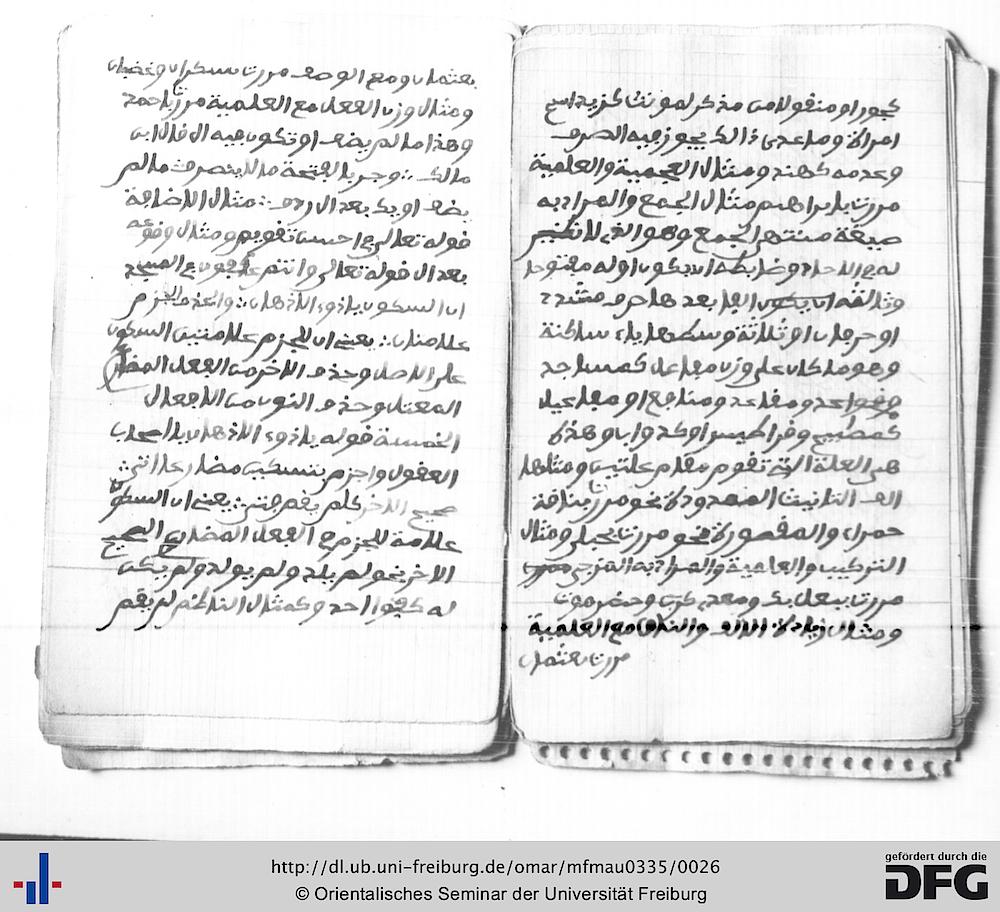 كجور او منقولا من مذكر لمونث كزيد اسم
امراة وما عدى ذالك يجوز فيه الصرف
وعدمه كهند ومثال العجمية والعلمية
مررت بابراهيم مثال الجمع والمراد به
صيغة منتهى الجموع وهو الذي لا نظير
له في الاحاد وضابطه ان يكون اوله مفتوحا
وثالثه الفا بعدها حرف مشدد
او حرفان او ثلاثة وسطها ياء ساكنة
وهو ما كان على وزن مفاعل كمساجد
ومقاعد ومنافع او مفاعيل
كمصابيح وقراطيس او كدواب وهذه
هي العلة التي تقوم مقام علتين ومثلها
الف التانيث الممدودة نحو مررت بناقة
حمراء والمقصورة نحو مررت بحبلى ومثال
التركيب والعلمية والمراد به المزجي
مررت ببعلبك ومعدي كرب وحضرموت
ومثال زيادة الالف والنون مع العلمية
مررت بعثمان
بعثمان ومع الوصف مررت بسكران وغضبان
ومثال وزن الفعل مع العلمية مررت باحمد
وهذا ما لم يضف او تكون فيه ال قال ابن
مالك ؞ وجر بالفتحة ما لا ينصرف ما لم
يضف او يك بعد ال ردف ؞ مثال الاضافة
قوله تعالى في احسن تقويم ومثال وقوعه
بعد ال قوله تعالى وانتم عاكفون في المسجد
ان السكون ياذوي الاذهان ؞ والحذف للجزم
علامتان ؞ يعني ان للجزم علامتين السكون
على الاصل وحذف الاخر من الفعل المضارع
المعتل وحذف النون من الافعال
الخمسة قوله ياذوي الاذهان يا اصحاب
العقول واجزم بتسكين مضارعا اتى ؞
صحيح الاخر كلم يقم فتى ؞ يعني ان السكون
علامة للجزم في الفعل المضارع الصحيح
الاخر نحو لم يلد ولم يولد ولم يكن
له كفؤا احد وكمثال الناظم لم يقم
http://dl.ub.uni-freiburg.de/omar/mfmau0335/0026
© Orientalisches Seminar der Universität Freiburg
gefördert durch die
DFG